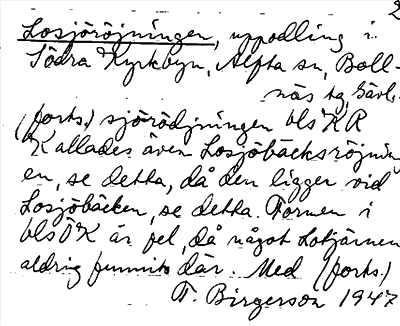 2
Losjöröjningen, uppodling i
Södra Kyrkbyn, Alfta sn, Boll-
näs tg, Gävl.
(forts.) sjörödjningen bls KR
Kallades även Losjöbäcksröjning
en, se detta, då den ligger vid
Losjöbäcken, se detta. Formen i
bls ÖK är fel, då något Lotjärnen
aldrig funnits där. Med (forts.)
T. Birgerson 1947